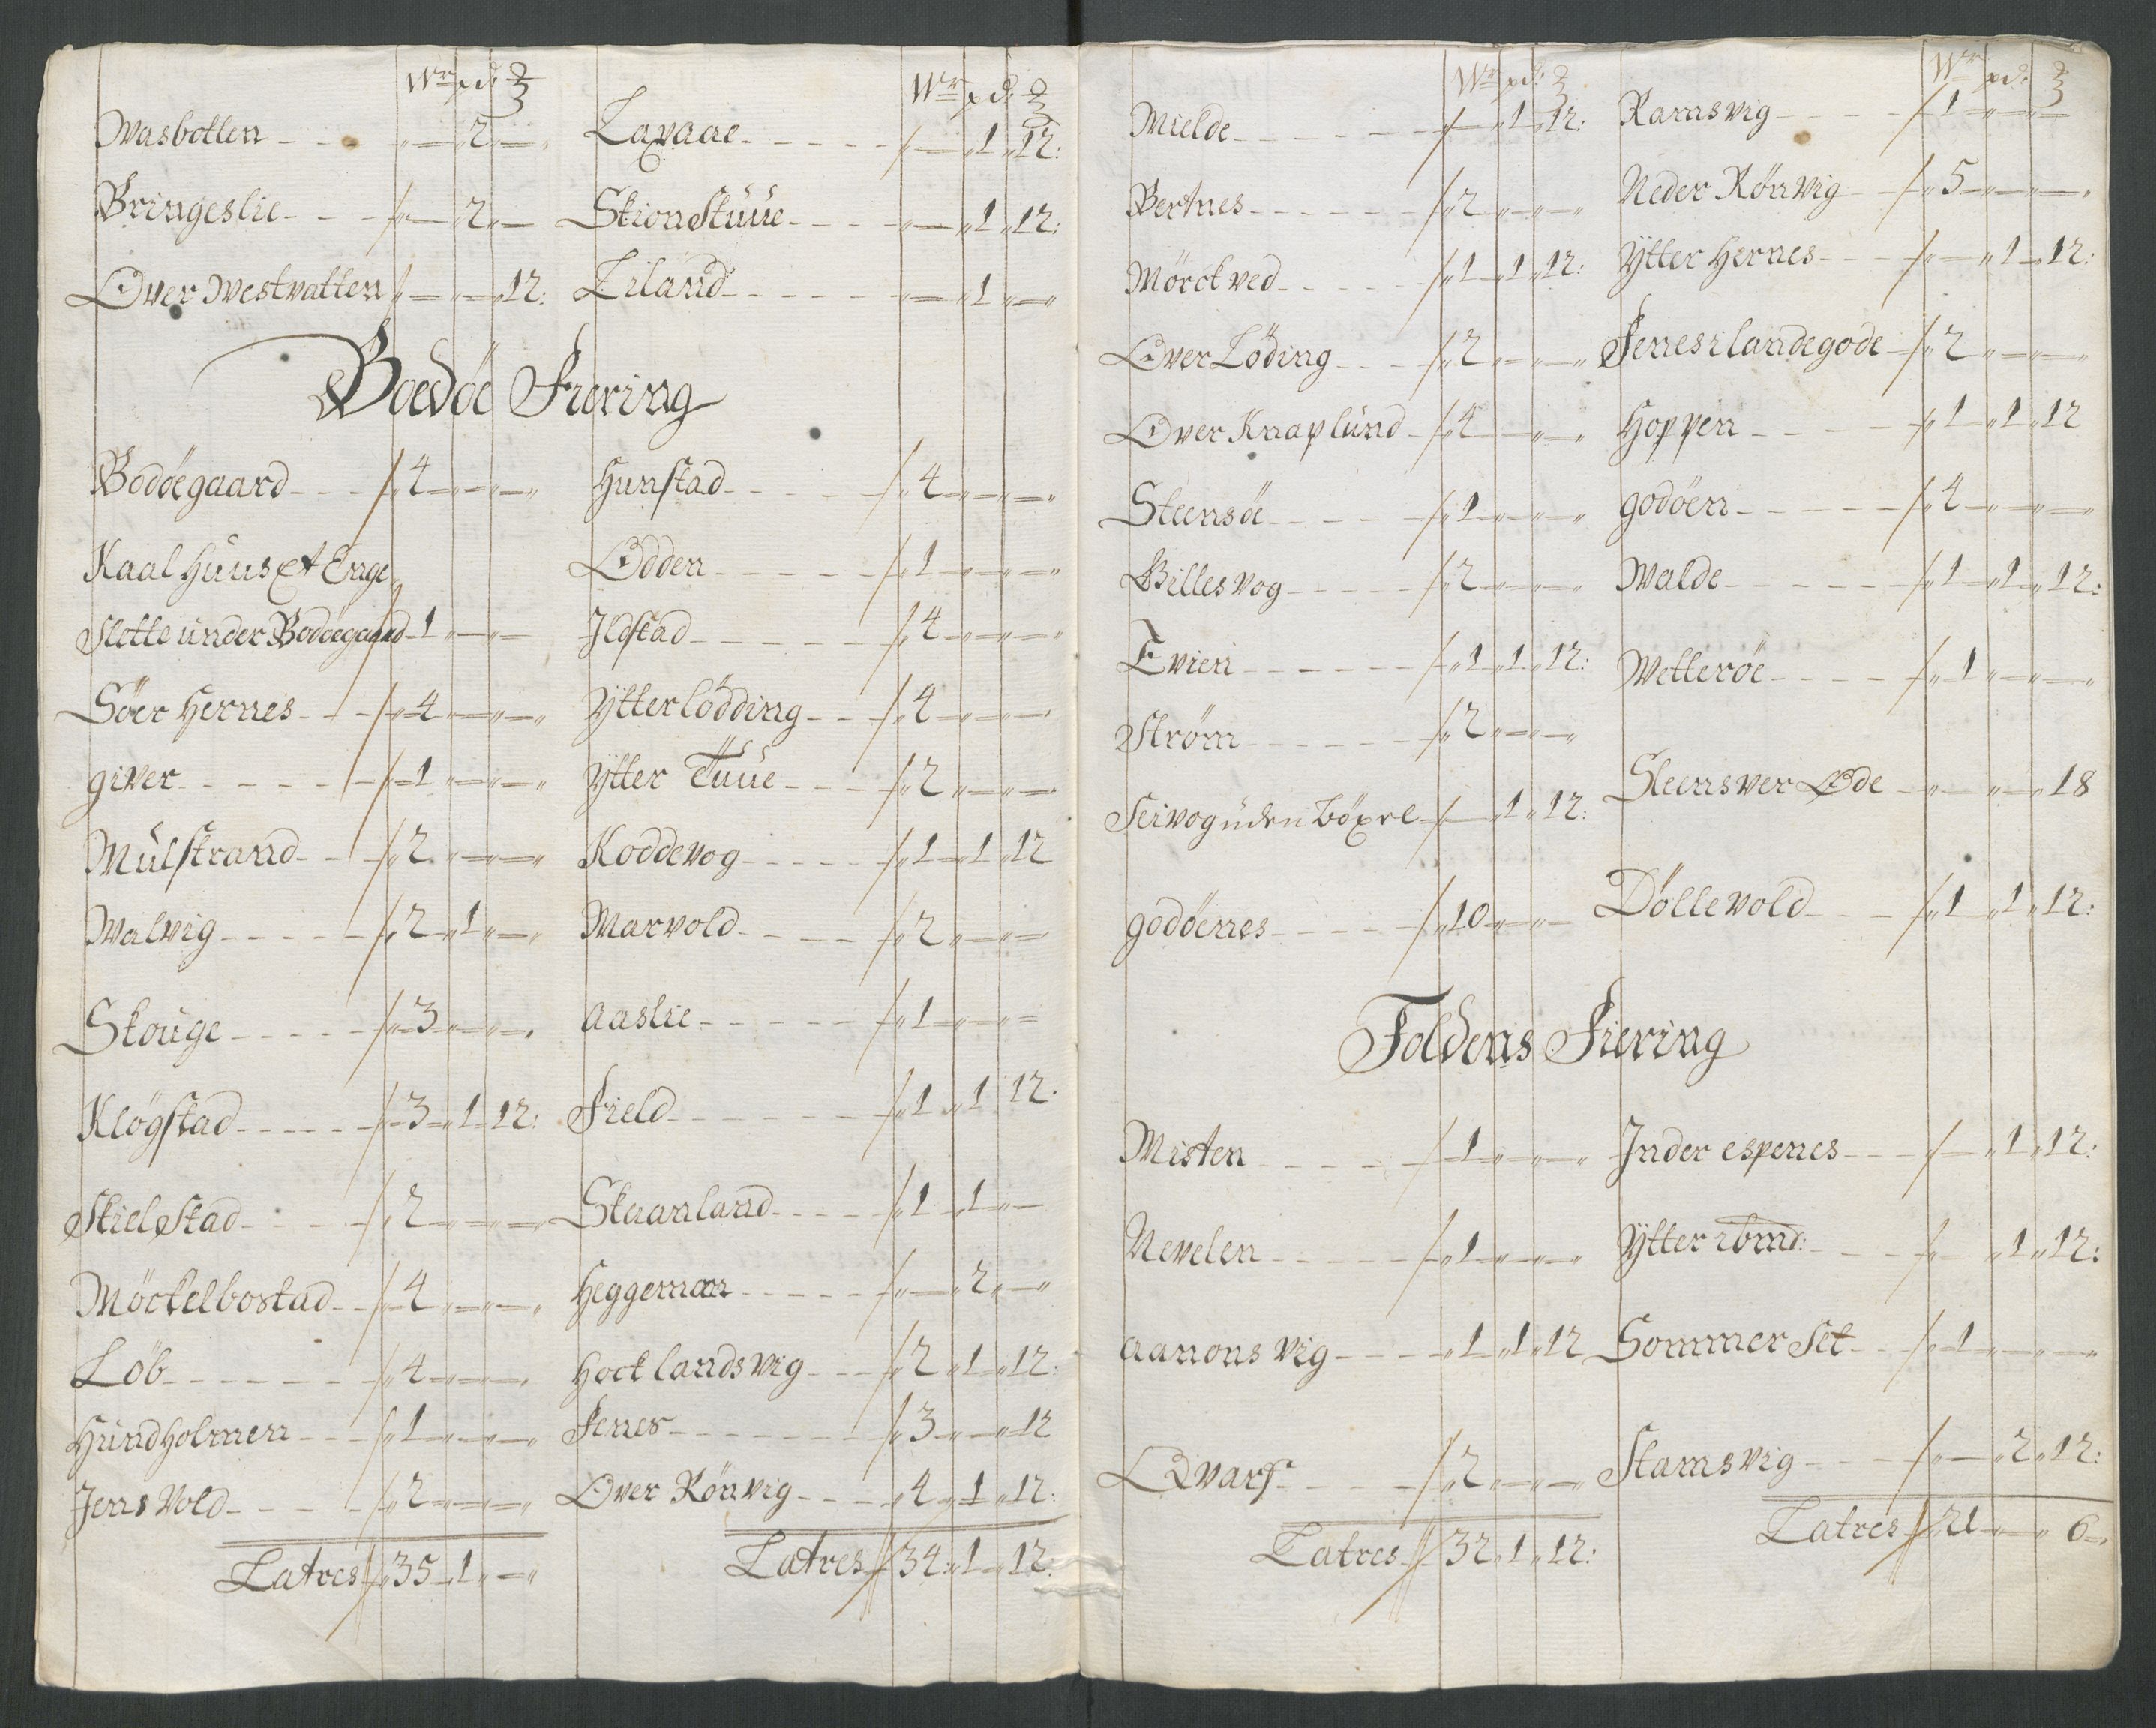 Wr pd: ℔
Wasbotten - - - „ — „ 2 „ — „
Bringeslie - - - „ — „ 2 „ —
Over Westvatten „ — „ — „ 12:
Wr pd: ℔
Laxaae - - - - - „ — „ 1 „ 12:
Skionstuue - - - - „ — „ 1 „ 12:
Liland - - - - - „ — „ 1 „ — „
Boedöe Fiering
Bodöegaard - - - „ 4 „ — „ — „
Kaal huus et Enge
Slette under Bodöegaard - 1 „ — „ —
Söer Hernes - - - „ 4 „ — „ — „
giver - - - - - „ 1 „ — „ — „
Mulstrand - - - „ 2 „ — „ — „
Walvig - - - - - „ 2 „ 1 „ — „
Skouge - - - - „ 3 „ — „ — „
Klögstad - - - - - „ 3 „ 1 „ 12:
Skielstad - - - - „ 2 „ — „ — „
Möckelbostad - - „ 4 „ — „ — „
Löb - - - - - - „ 4 „ — „ — „
Hundholmen - - - „ 1 „ — „ — „
Jens Vold - - - - „ 2 „ — „ — „
Latres „ 35 „ 1 „ — „
Hunstad - - - - „ 4 „ — „ — „
Odden - - - - - „ 1 „ — „ — „
Ildstad - - - - - „ 4 „ — „ — „
Ytterlödding - - - „ 4 „ — „ — „
Ytter Tuue - - - „ 2 „ — „ — „
Koddevog - - - - „ 1 „ 1 „ 12
Marvold - - - - „ 2 „ — „ — „
aaslie - - - - - „ 1 „ — „ —
Field - - - - - - „ 1 „ 1 „ 12.
Skaanland - - - - „ 1 „ 1 „ —
Heggemoen - - - - - „ — „ 2 „ — „
Hocklandsvig - - - „ 2 „ 1 „ 12:
Fenes - - - - - - „ 3 „ — „ 12
Over Rönvig - - - „ 4 „ 1 „ 12:
Latres „ 34 „ 1 „ 12:
Wr pd: ℔
Mielde - - - - - - „ — „ 1 „ 12:
Bertnes - - - - - - „ 2 „ — „ — „
Mörckved - - - - - „ 1 „ 1 „ 12:
Over Löding - - - - „ 2 „ — „ — „
Over Knaplund - „ 4 „ — „ — „
Steensöe - - - - - „ 1 „ — „ — „
Billesvog - - - - - „ 2 „ — „ — „
Evien - - - - - - „ 1 „ 1 „ 12:
Ström - - - - - - „ 2 „ — „ — „
Seivog uden böxel - „ — „ 1 „ 12:
godöenes - - - - - „ 10 „ — „ —
Wr pd: ℔
Ramsvig - - - - - „ 1 „ — „ —
Neder Rönvig - - „ 5 „ — „ — „
Ytter Hernes - - - „ — „ 1 „ 12:
Fenes i landegode - „ 2 „ — „ — „
Hoppen - - - - - „ 1 „ 1 „ 12
godöen - - - - - „ 4 „ — „ — „
Walde - - - - - - „ 1 „ 1 „ 12:
Wetteröe - - - - - „ 1 „ — „ — „
Steensver Øde - „ — „ — „ 18
Döllevold - - - - „ 1 „ 1 „ 12:
Foldens Fiering
Misten - - - - - „ 1 „ — „ — „
Nevelen - - - - - „ 1 „ — „ — „
aanons vig - - - - „ 1 „ 1 „ 12
Qvarf - - - - - „ 2 „ — „ — „
Latres „ 32 „ 1 „ 12:
Inder espenes - - - „ — „ 1 „ 12:
Ytter ibmd: - - - - „ — „ 1 „ 12:
Sommer Set - - - „ 1 „ — „ — „
Stamsvig - - - - „ — „ 2 „ 12:
Latres „ 21 „ — „ 6 „